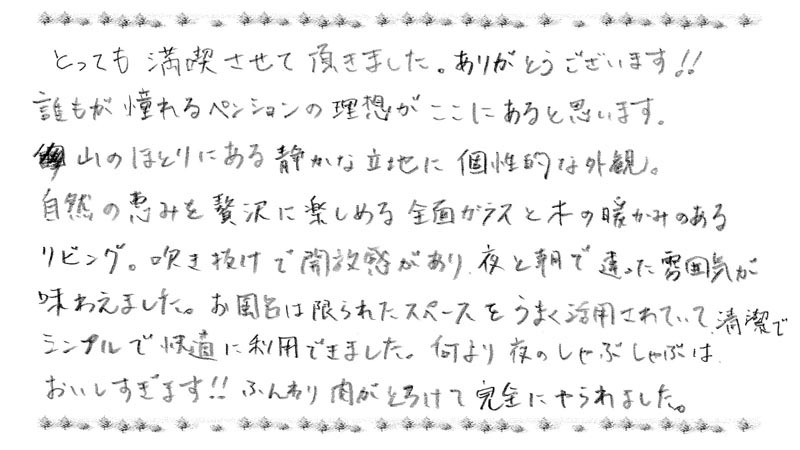 とっても満喫させて頂きました。ありがとうございます!!
誰もが憧れるペンションの理想がここにあると思います。
山のほとりにある静かな立地に個性的な外観。
自然の恵みを贅沢に楽しめる全面ガラスと木の暖かみのある
リビング。吹き抜けで開放感があり、夜と朝で違った雰囲気が
味わえました。お風呂は限られたスペースをうまく活用されていて、清潔で
シンプルで快適に利用できました。何より夜のしゃぶしゃぶは、
おいしすぎます!!ふんわり肉がとろけて完全にやられました。